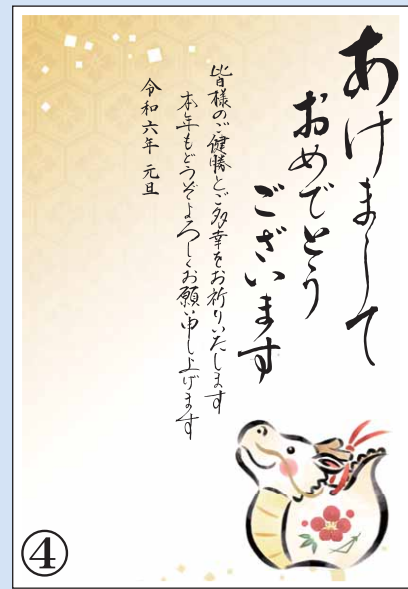 あけまして
おめでとう
ございます
皆様のご健勝とご多幸をお祈りいたします
本年もどうぞよろしくお願い申し上げます
令和六年 元旦
④